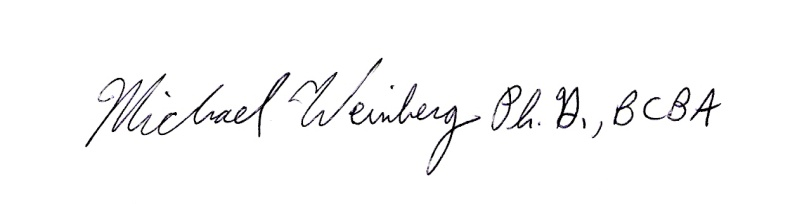 Michael Weinberg Ph.D., BCBA